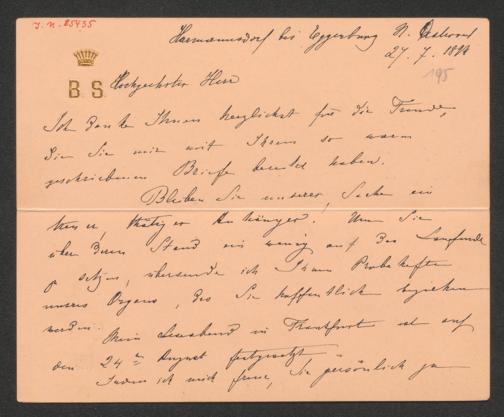 J. N. 25435
Harmannsdorf bei Eggenburg N. Oesterreich
27. 7. 1894
195
B S
Hochgeehrter Herr
Ich danke Ihnen herzlichst für die Freude,
die Sie mir mit Ihrem so warm
geschriebenen Briefe bereitet haben.
Bleiben Sie unserer Sache ein
treuer, thätiger Anhänger! Um Sie
über deren Stand ein wenig auf das Laufende
zu setzen, übersende ich Ihnen Probehefte
unseres Organs, das Sie hoffentlich beziehen
werden.
Mein Leseabend in Frankfurt ist auf
den 24ten August festgesetzt
Indem ich mich freue, Sie persönlich